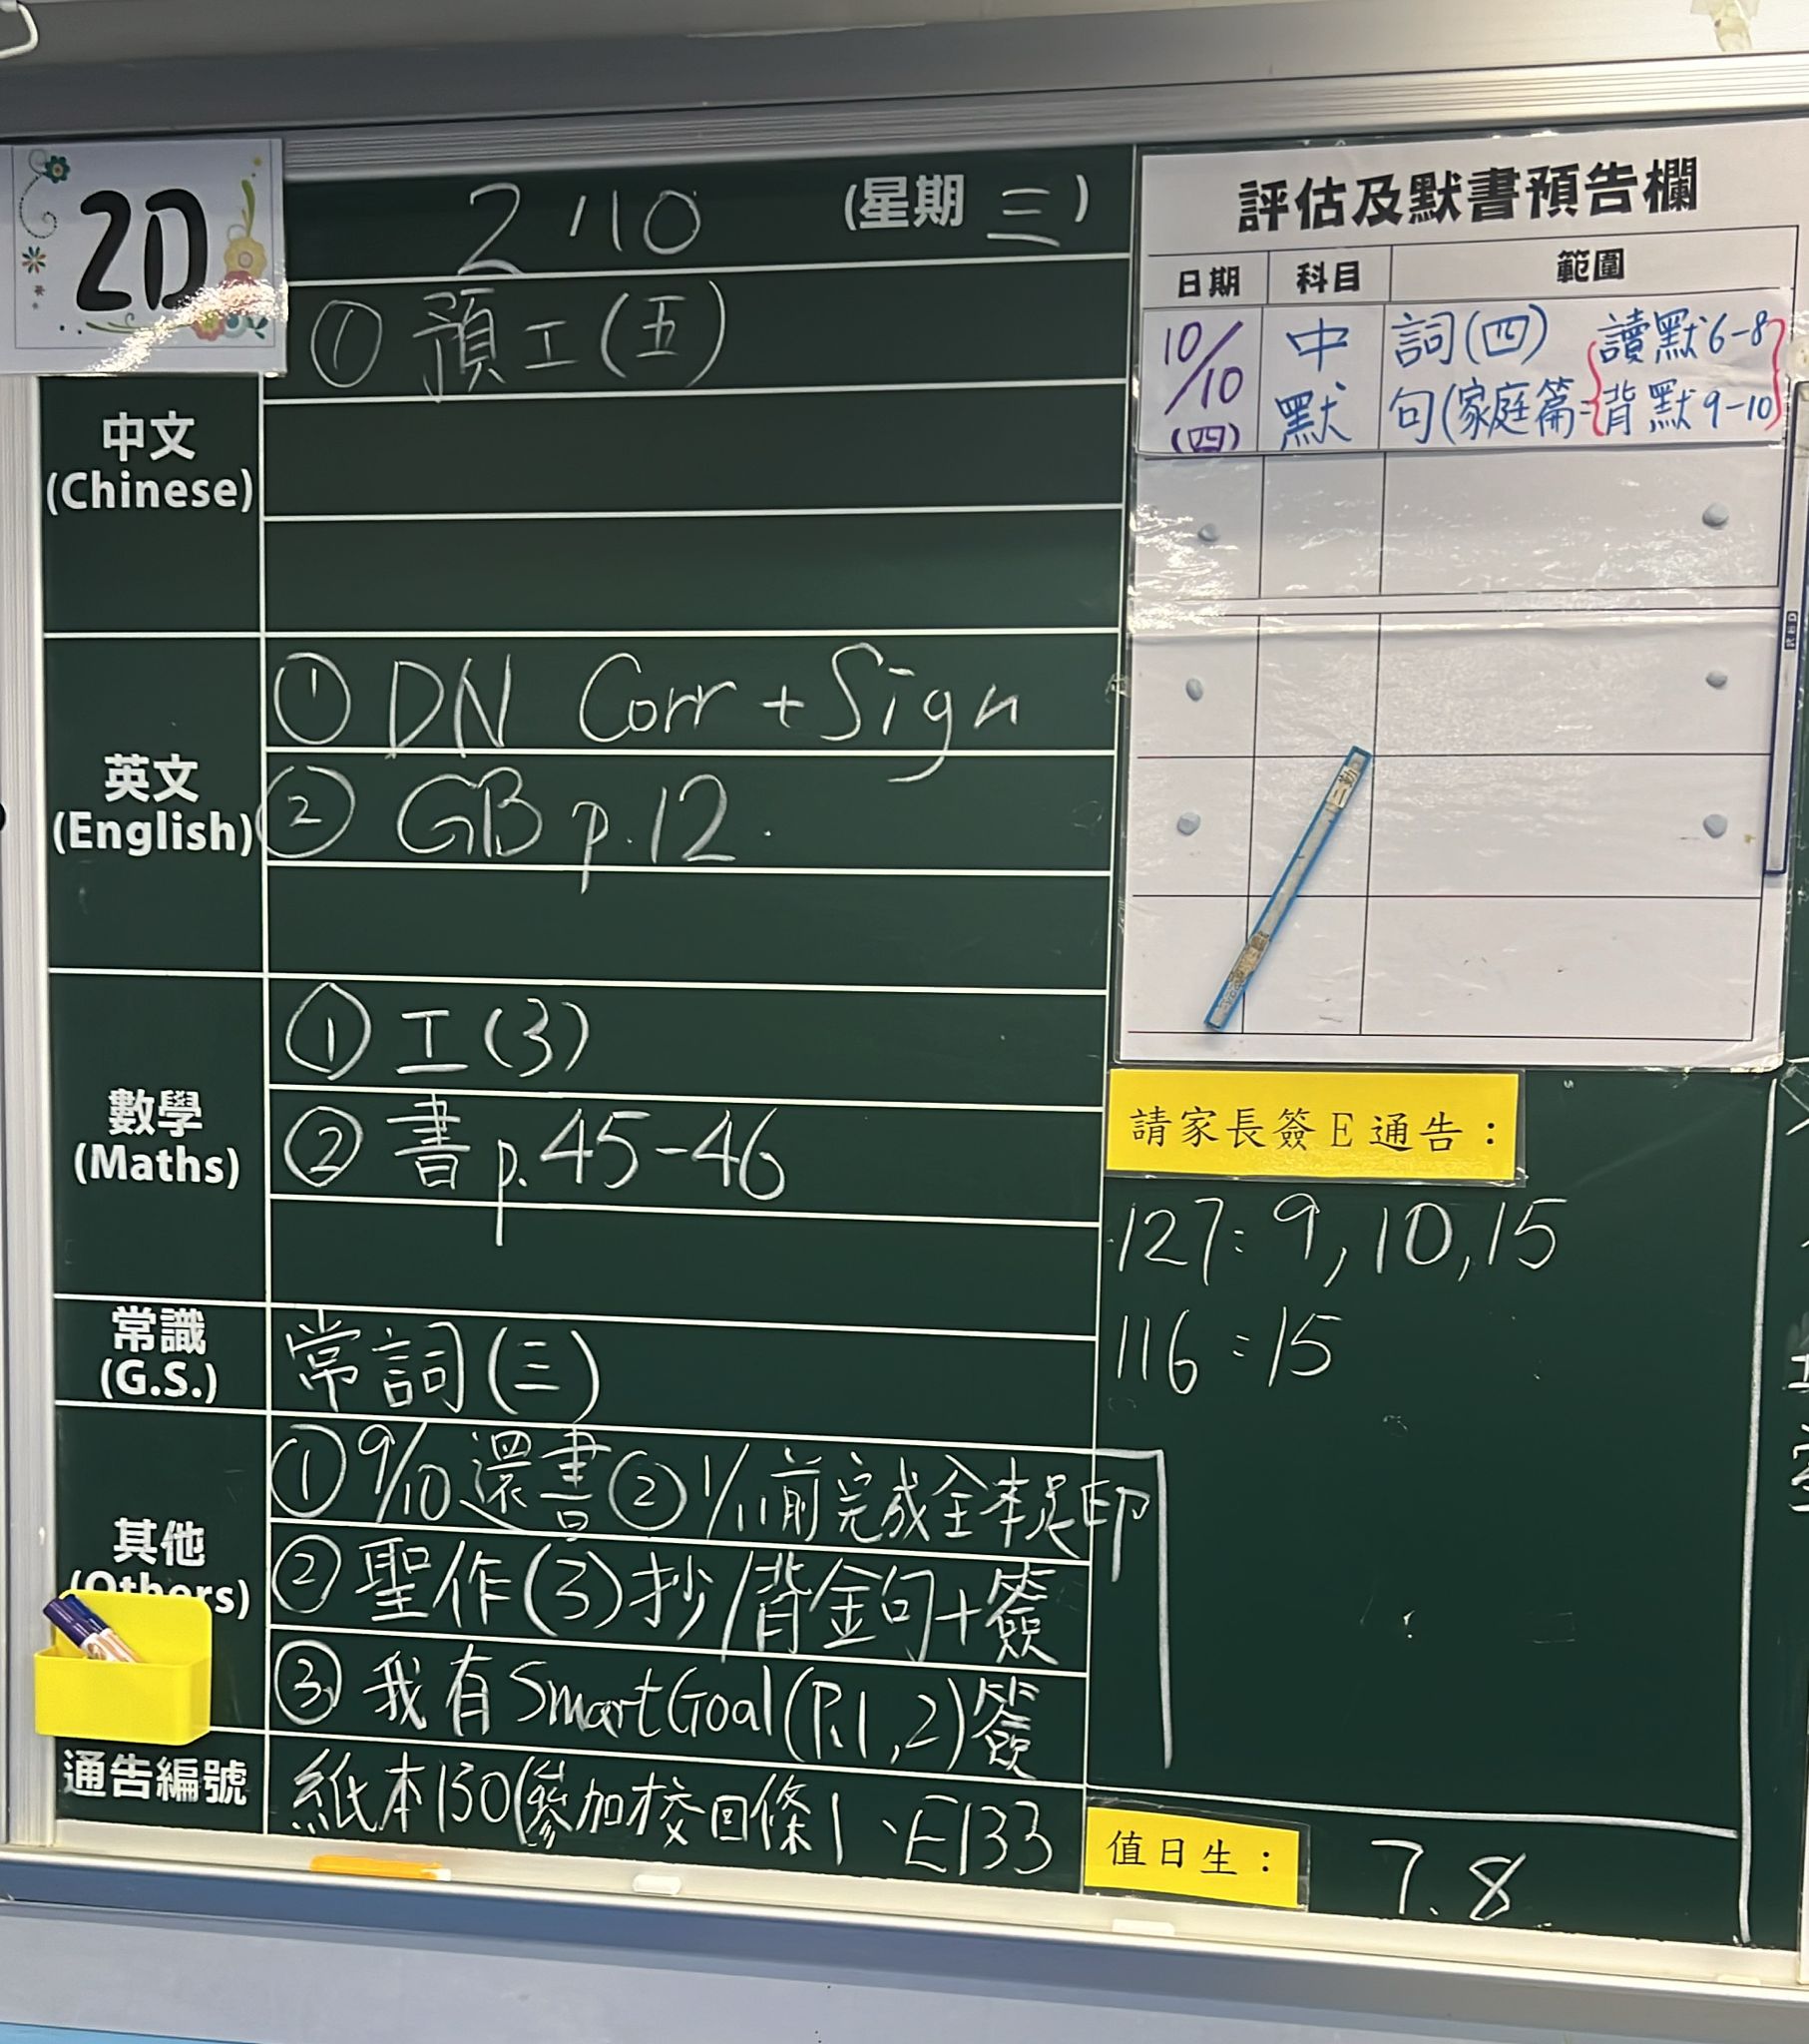 2D
2/10 (星期三)
① 預工(五)
中文
(Chinese)
英文
(English)
① DN Corr + Sign
② GB p.12.
數學
(Maths)
① 工(3)
② 書 p.45-46
常識
(G.S.)
常詞(三)
其他
(Others)
① 9/10 還書 ② 1/11前完成全本足印
② 聖作(3) 抄/背金句+簽
③ 我有SmartGoal(P.1,2)簽
通告編號
紙本130(參加校回條)、E133
評估及默書預告欄
日期 科目 範圍
10/10 (四)
中默
詞(四) 讀默6-8
句(家庭篇: 背默9-10
請家長簽E通告：
127: 9, 10, 15
116: 15
值日生： 7.8